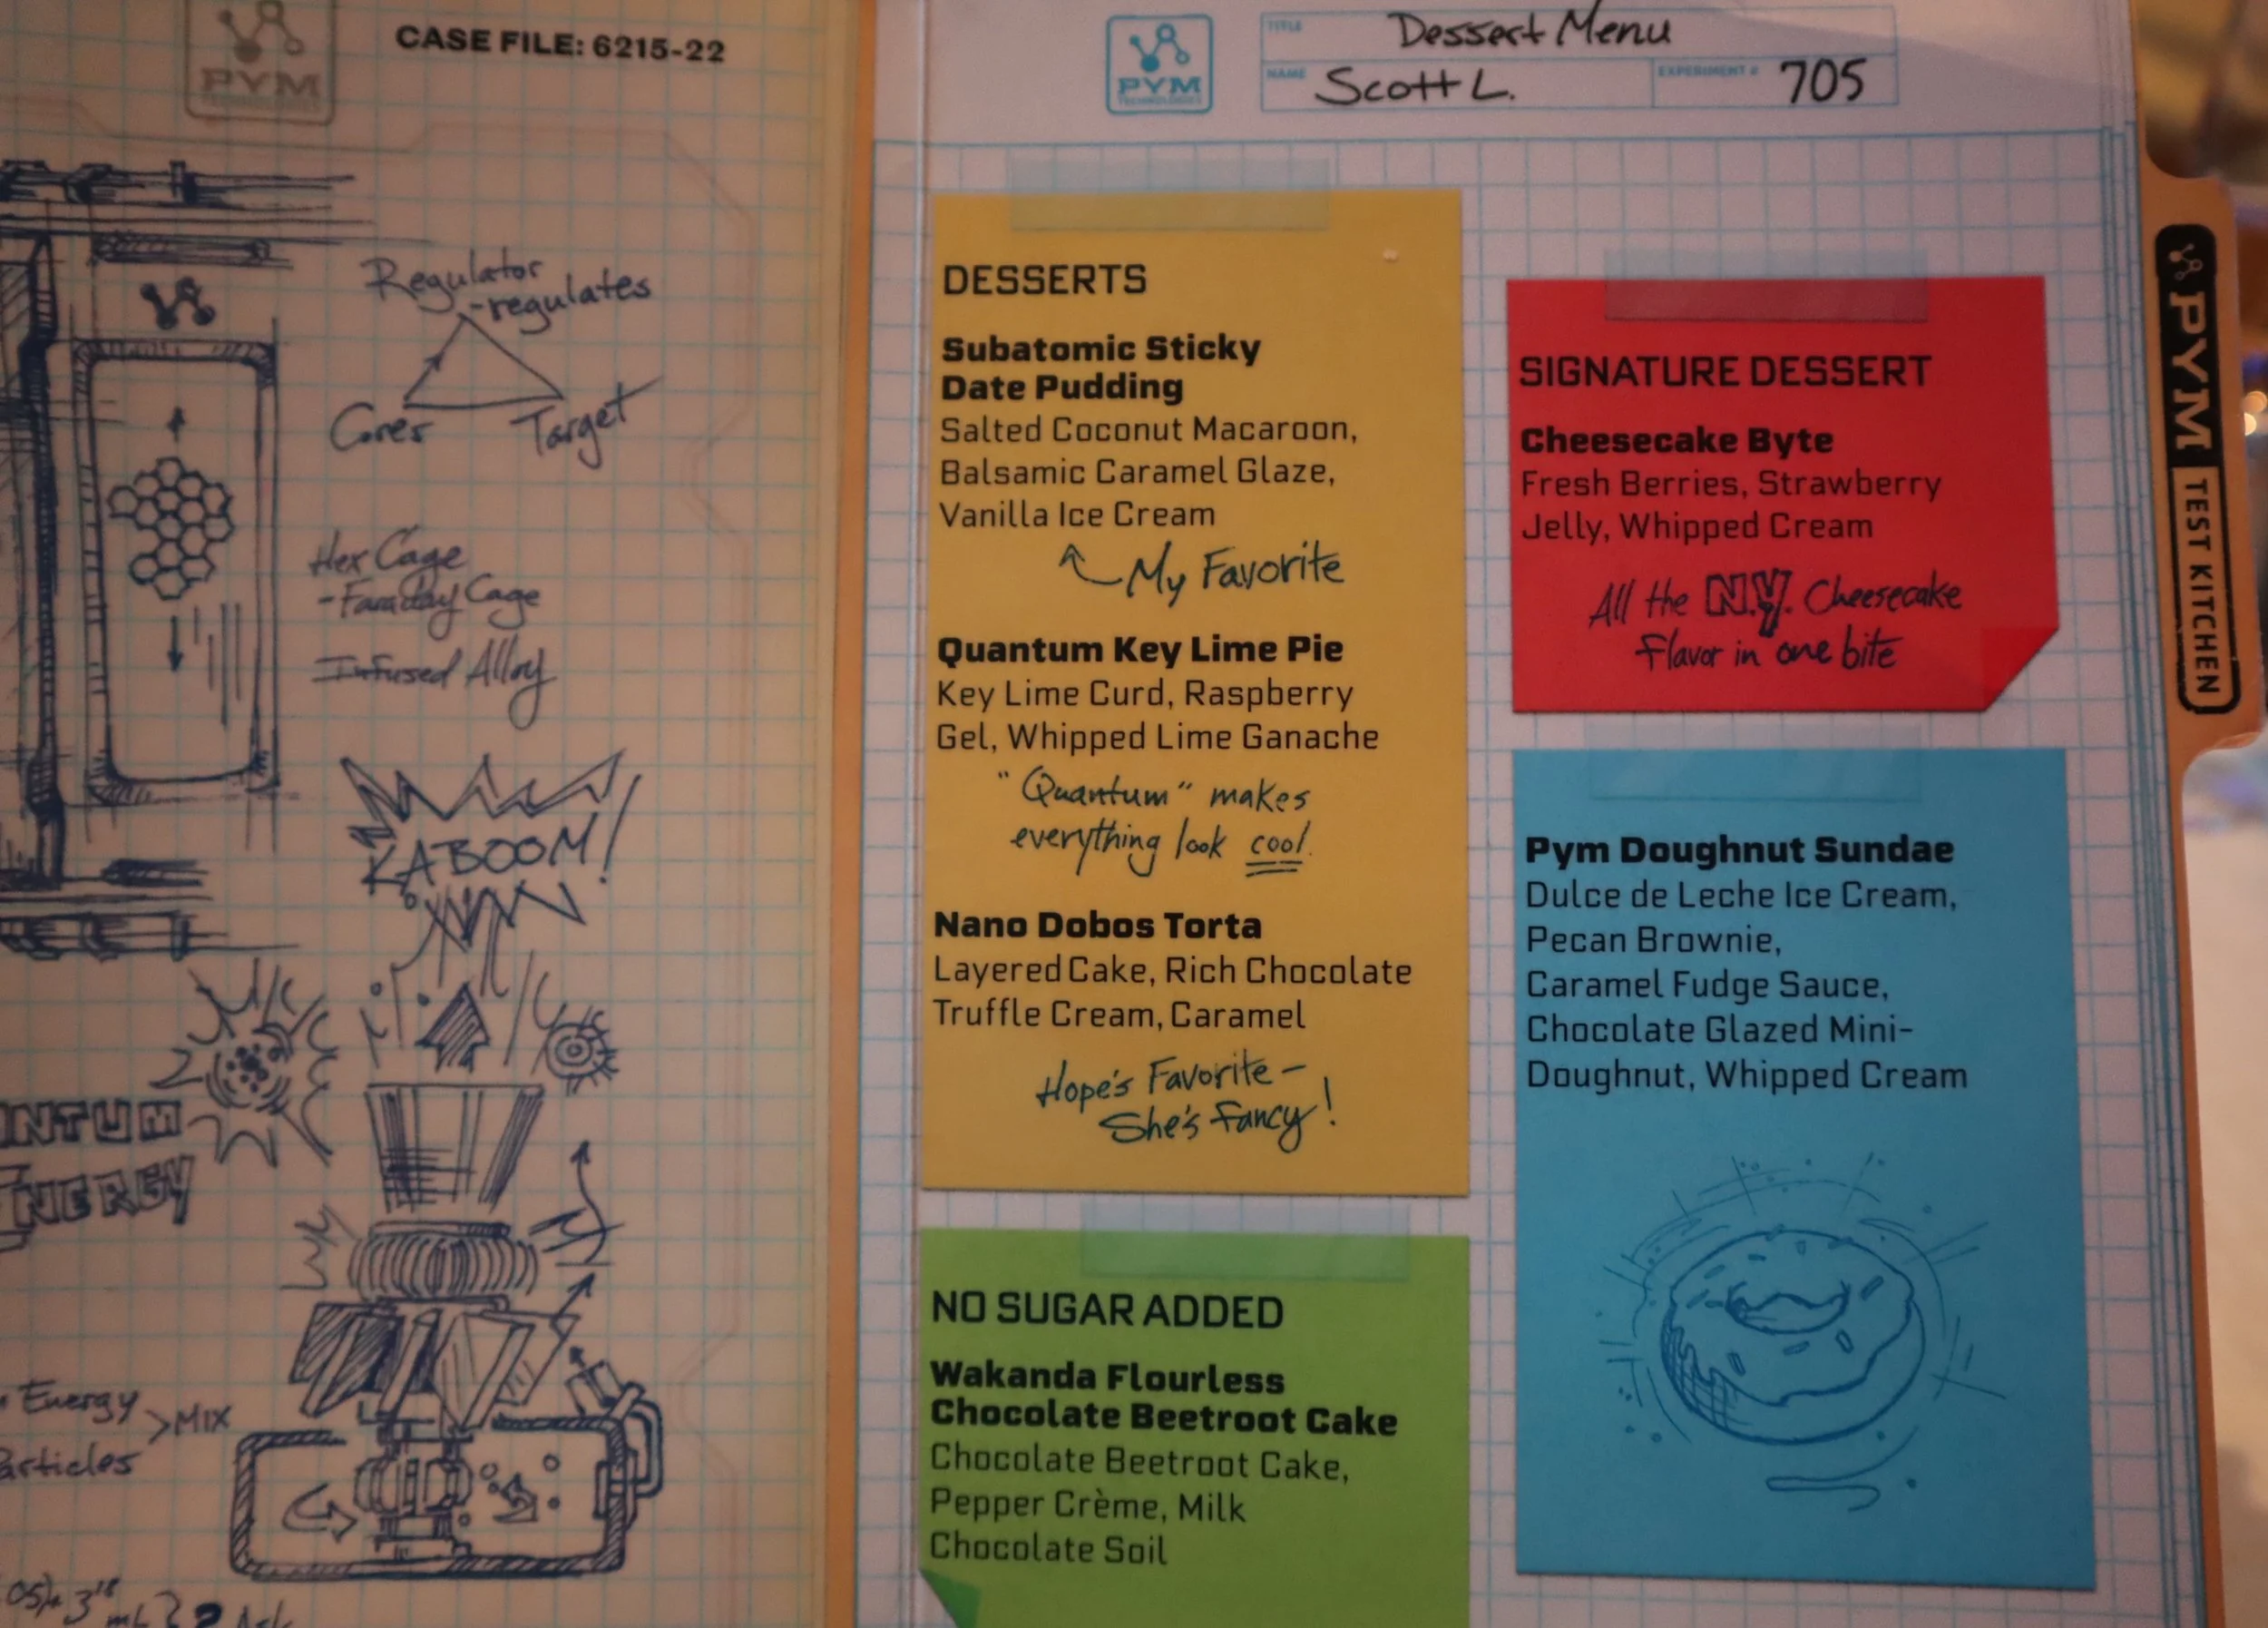 PYM
TECHNOLOGIES
CASE FILE: 6215-22
Regulator
-regulates
Cores
Target
Hex Cage
-Faraday Cage
Infused Alloy
KABOOM!
NTUM
ENERGY
Energy
>MIX
Particles
PYM
TECHNOLOGIES
TITLE
Dessert Menu
NAME
Scott L.
EXPERIMENT #
705
DESSERTS
Subatomic Sticky
Date Pudding
Salted Coconut Macaroon,
Balsamic Caramel Glaze,
Vanilla Ice Cream
My Favorite
Quantum Key Lime Pie
Key Lime Curd, Raspberry
Gel, Whipped Lime Ganache
"Quantum" makes
everything look cool.
Nano Dobos Torta
Layered Cake, Rich Chocolate
Truffle Cream, Caramel
Hope's Favorite -
She's fancy!
NO SUGAR ADDED
Wakanda Flourless
Chocolate Beetroot Cake
Chocolate Beetroot Cake,
Pepper Crème, Milk
Chocolate Soil
SIGNATURE DESSERT
Cheesecake Byte
Fresh Berries, Strawberry
Jelly, Whipped Cream
All the N.Y. Cheesecake
flavor in one bite
Pym Doughnut Sundae
Dulce de Leche Ice Cream,
Pecan Brownie,
Caramel Fudge Sauce,
Chocolate Glazed Mini-
Doughnut, Whipped Cream
PYM TEST KITCHEN